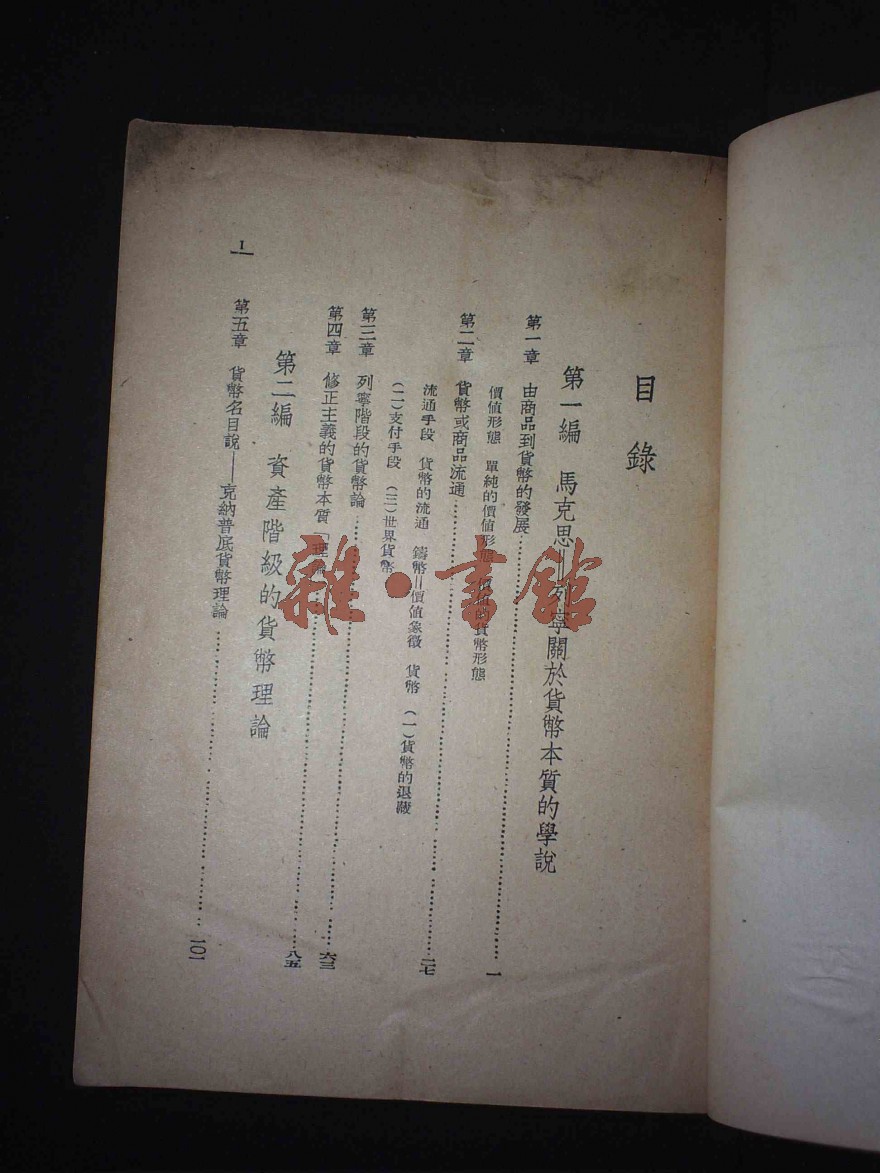 目錄
第一編 馬克思＝列寧關於貨幣本質的學說
第一章 由商品到貨幣的發展……一
價值形態 單純的價值形態 價值的貨幣形態
第二章 貨幣或商品流通……二七
流通手段 貨幣的流通 鑄幣＝價值象徵 貨幣 (一)貨幣的退藏
(二)支付手段 (三)世界貨幣
第三章 列寧階段的貨幣論……六三
第四章 修正主義的貨幣本質「理論」……八五
第二編 資產階級的貨幣理論
第五章 貨幣名目說——克納普底貨幣理論……一〇一
1
雜·書館